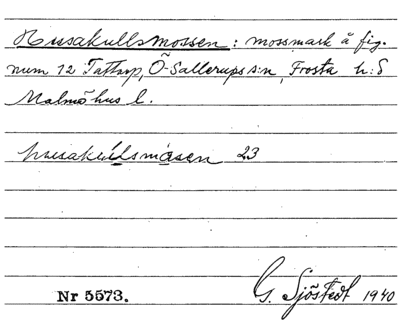 Husakullsmossen: mossmark å fig.
num 12 Tattarp, Ö-Sallerups s:n, Frosta h:d
Malmöhus l.
husakúlsmåsen 23
Nr 5573. G. Sjöstedt 1940